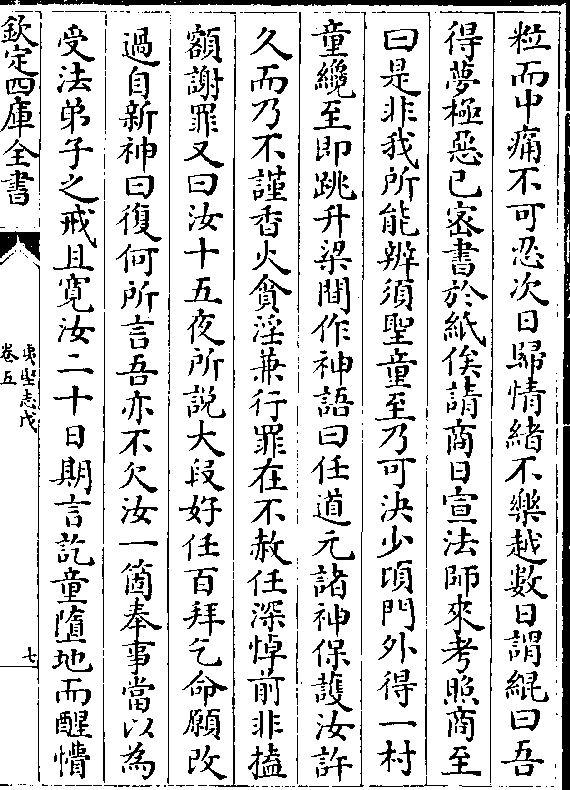 粒而中痛不可忍次日歸情緒不樂越數日謂緄曰吾
得夢極惡已宻書於紙俟請商日宣法師來考照商至
曰是非我所能辨須聖童至乃可決少頃門外得一村
童纔至即跳升梁間作神語曰任道元諸神保護汝許
久而乃不謹香火貪淫兼行罪在不赦任深悼前非搕
額謝罪又曰汝十五夜所説大段好任百拜乞命願改
過自新神曰復何所言吾亦不欠汝一箇奉事當以為
受法弟子之戒且寛汝二十日期言訖童墮地而醒懵
欽定四庫全書
夷堅志戊
卷五
七